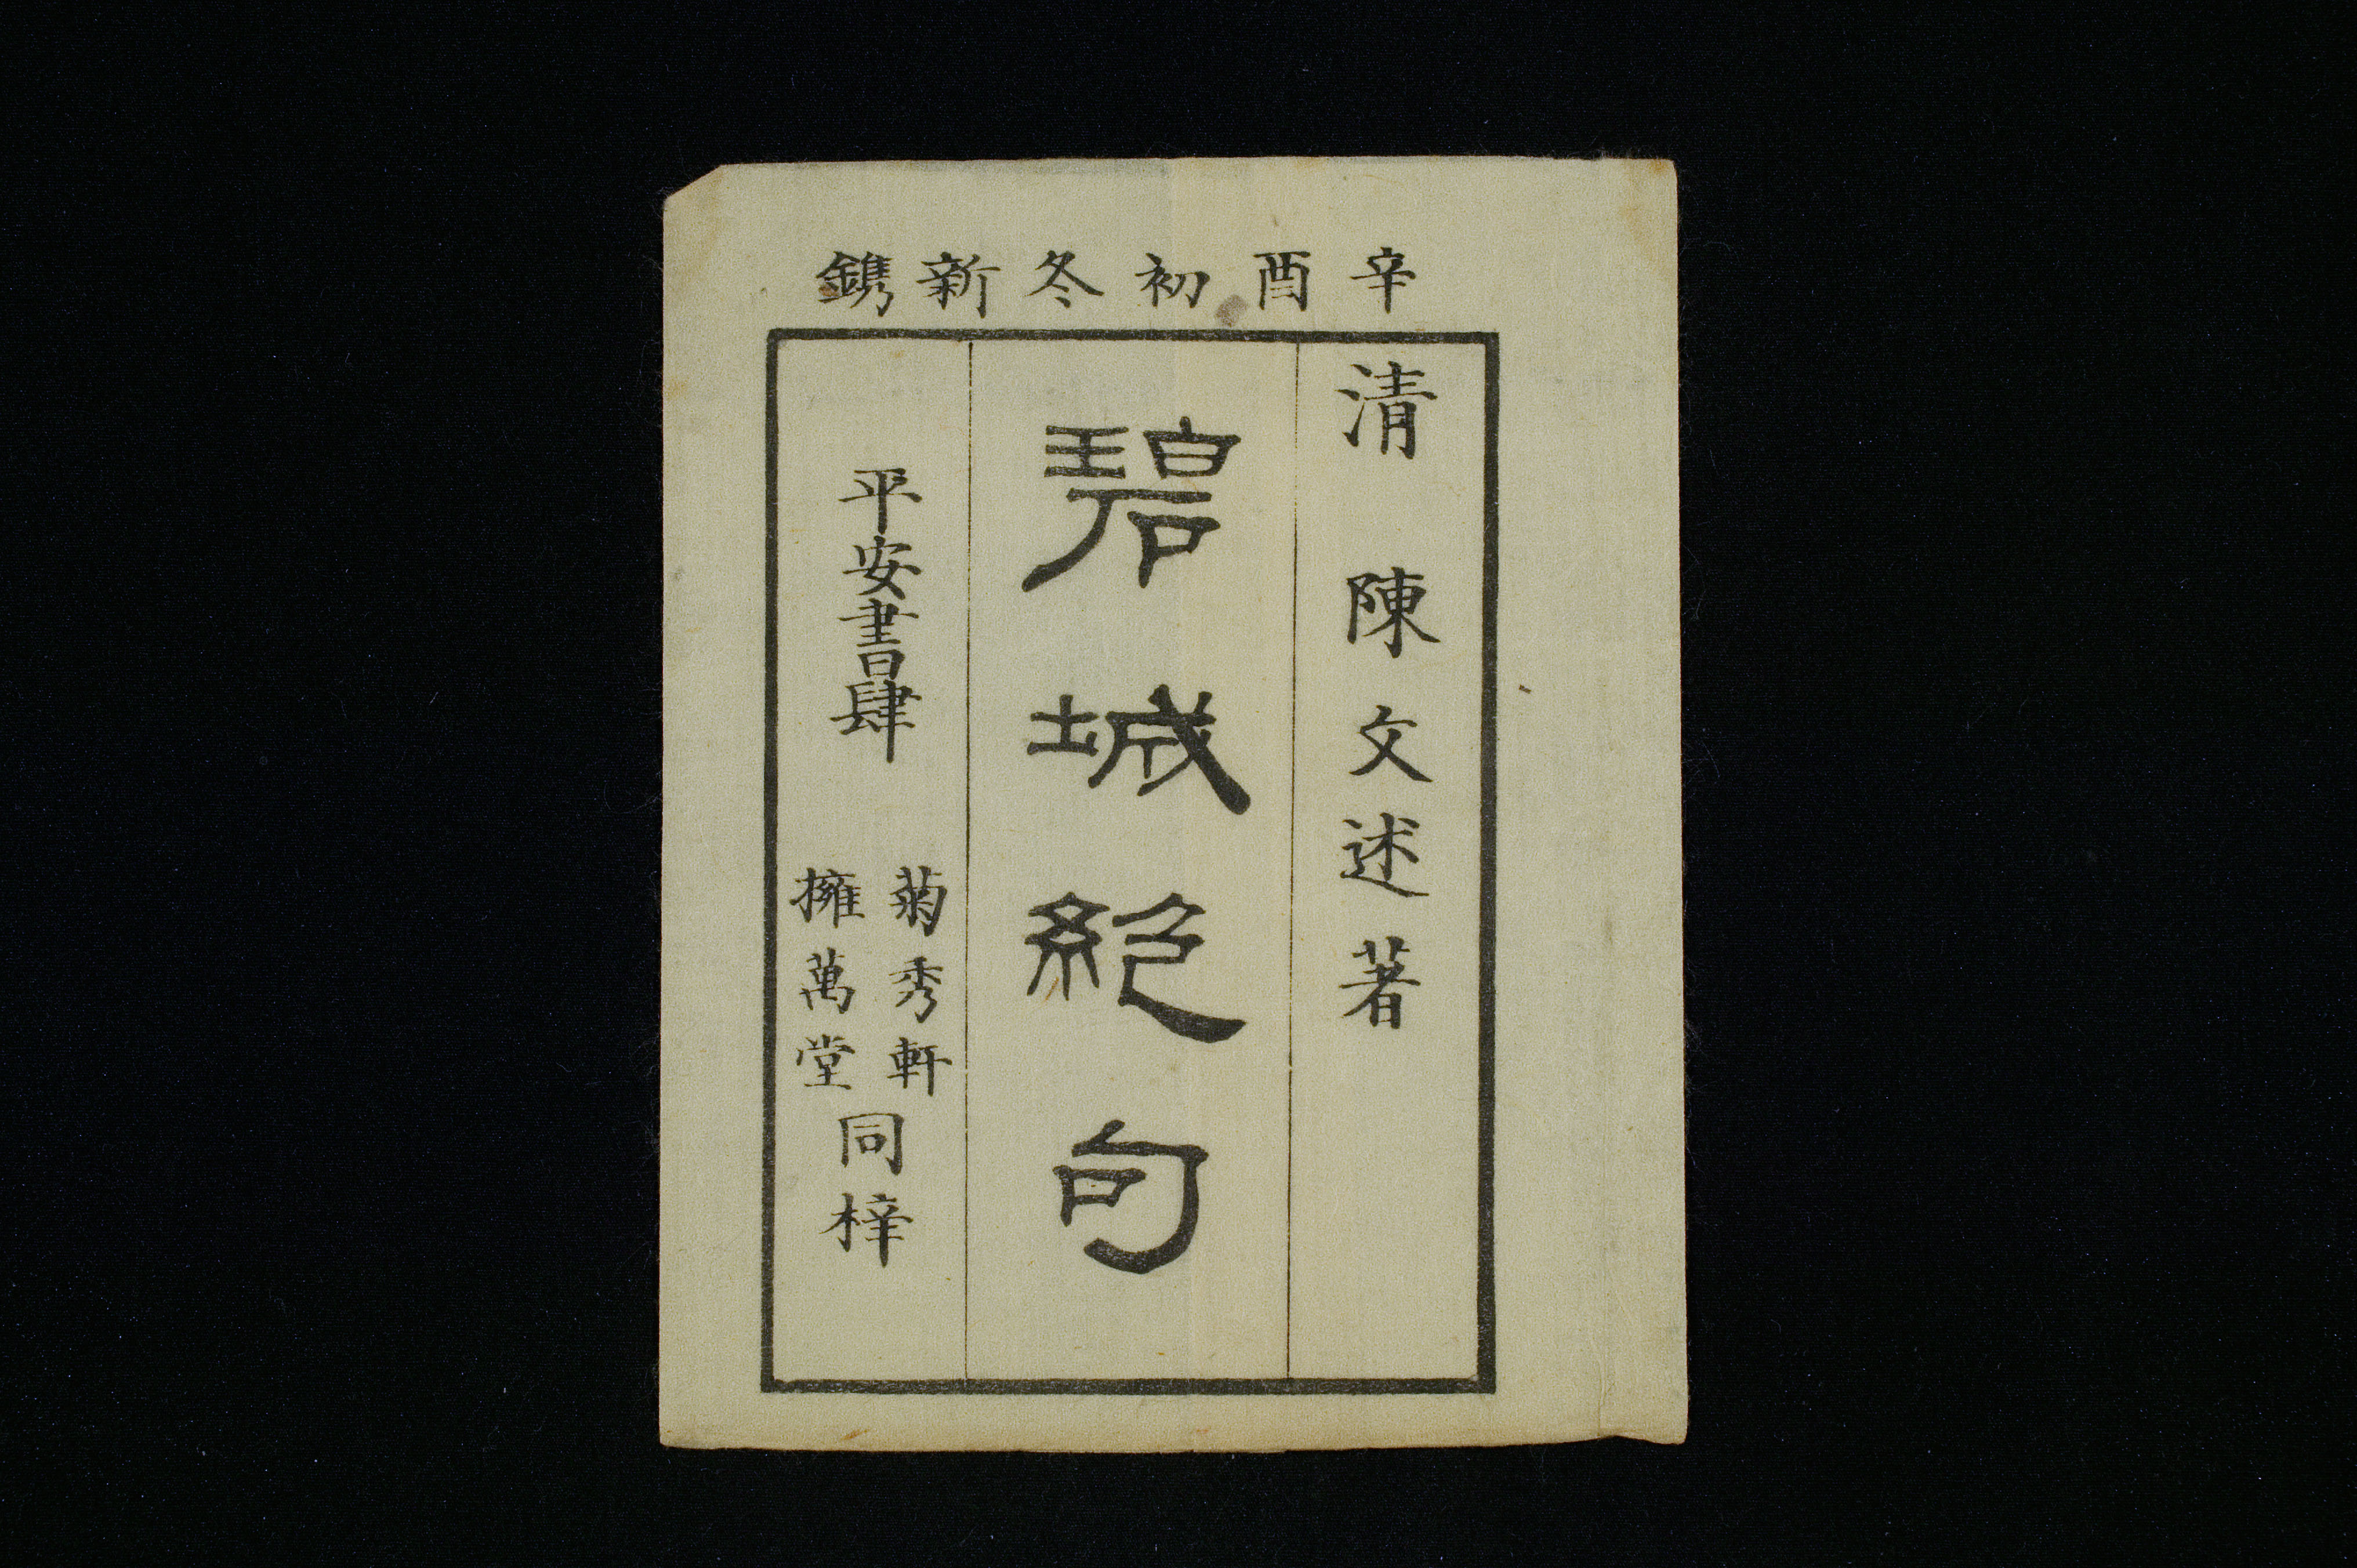 辛酉初冬新鐫
清 陳文述著
碧城絕句
平安書肆
菊秀軒
擁萬堂
同梓